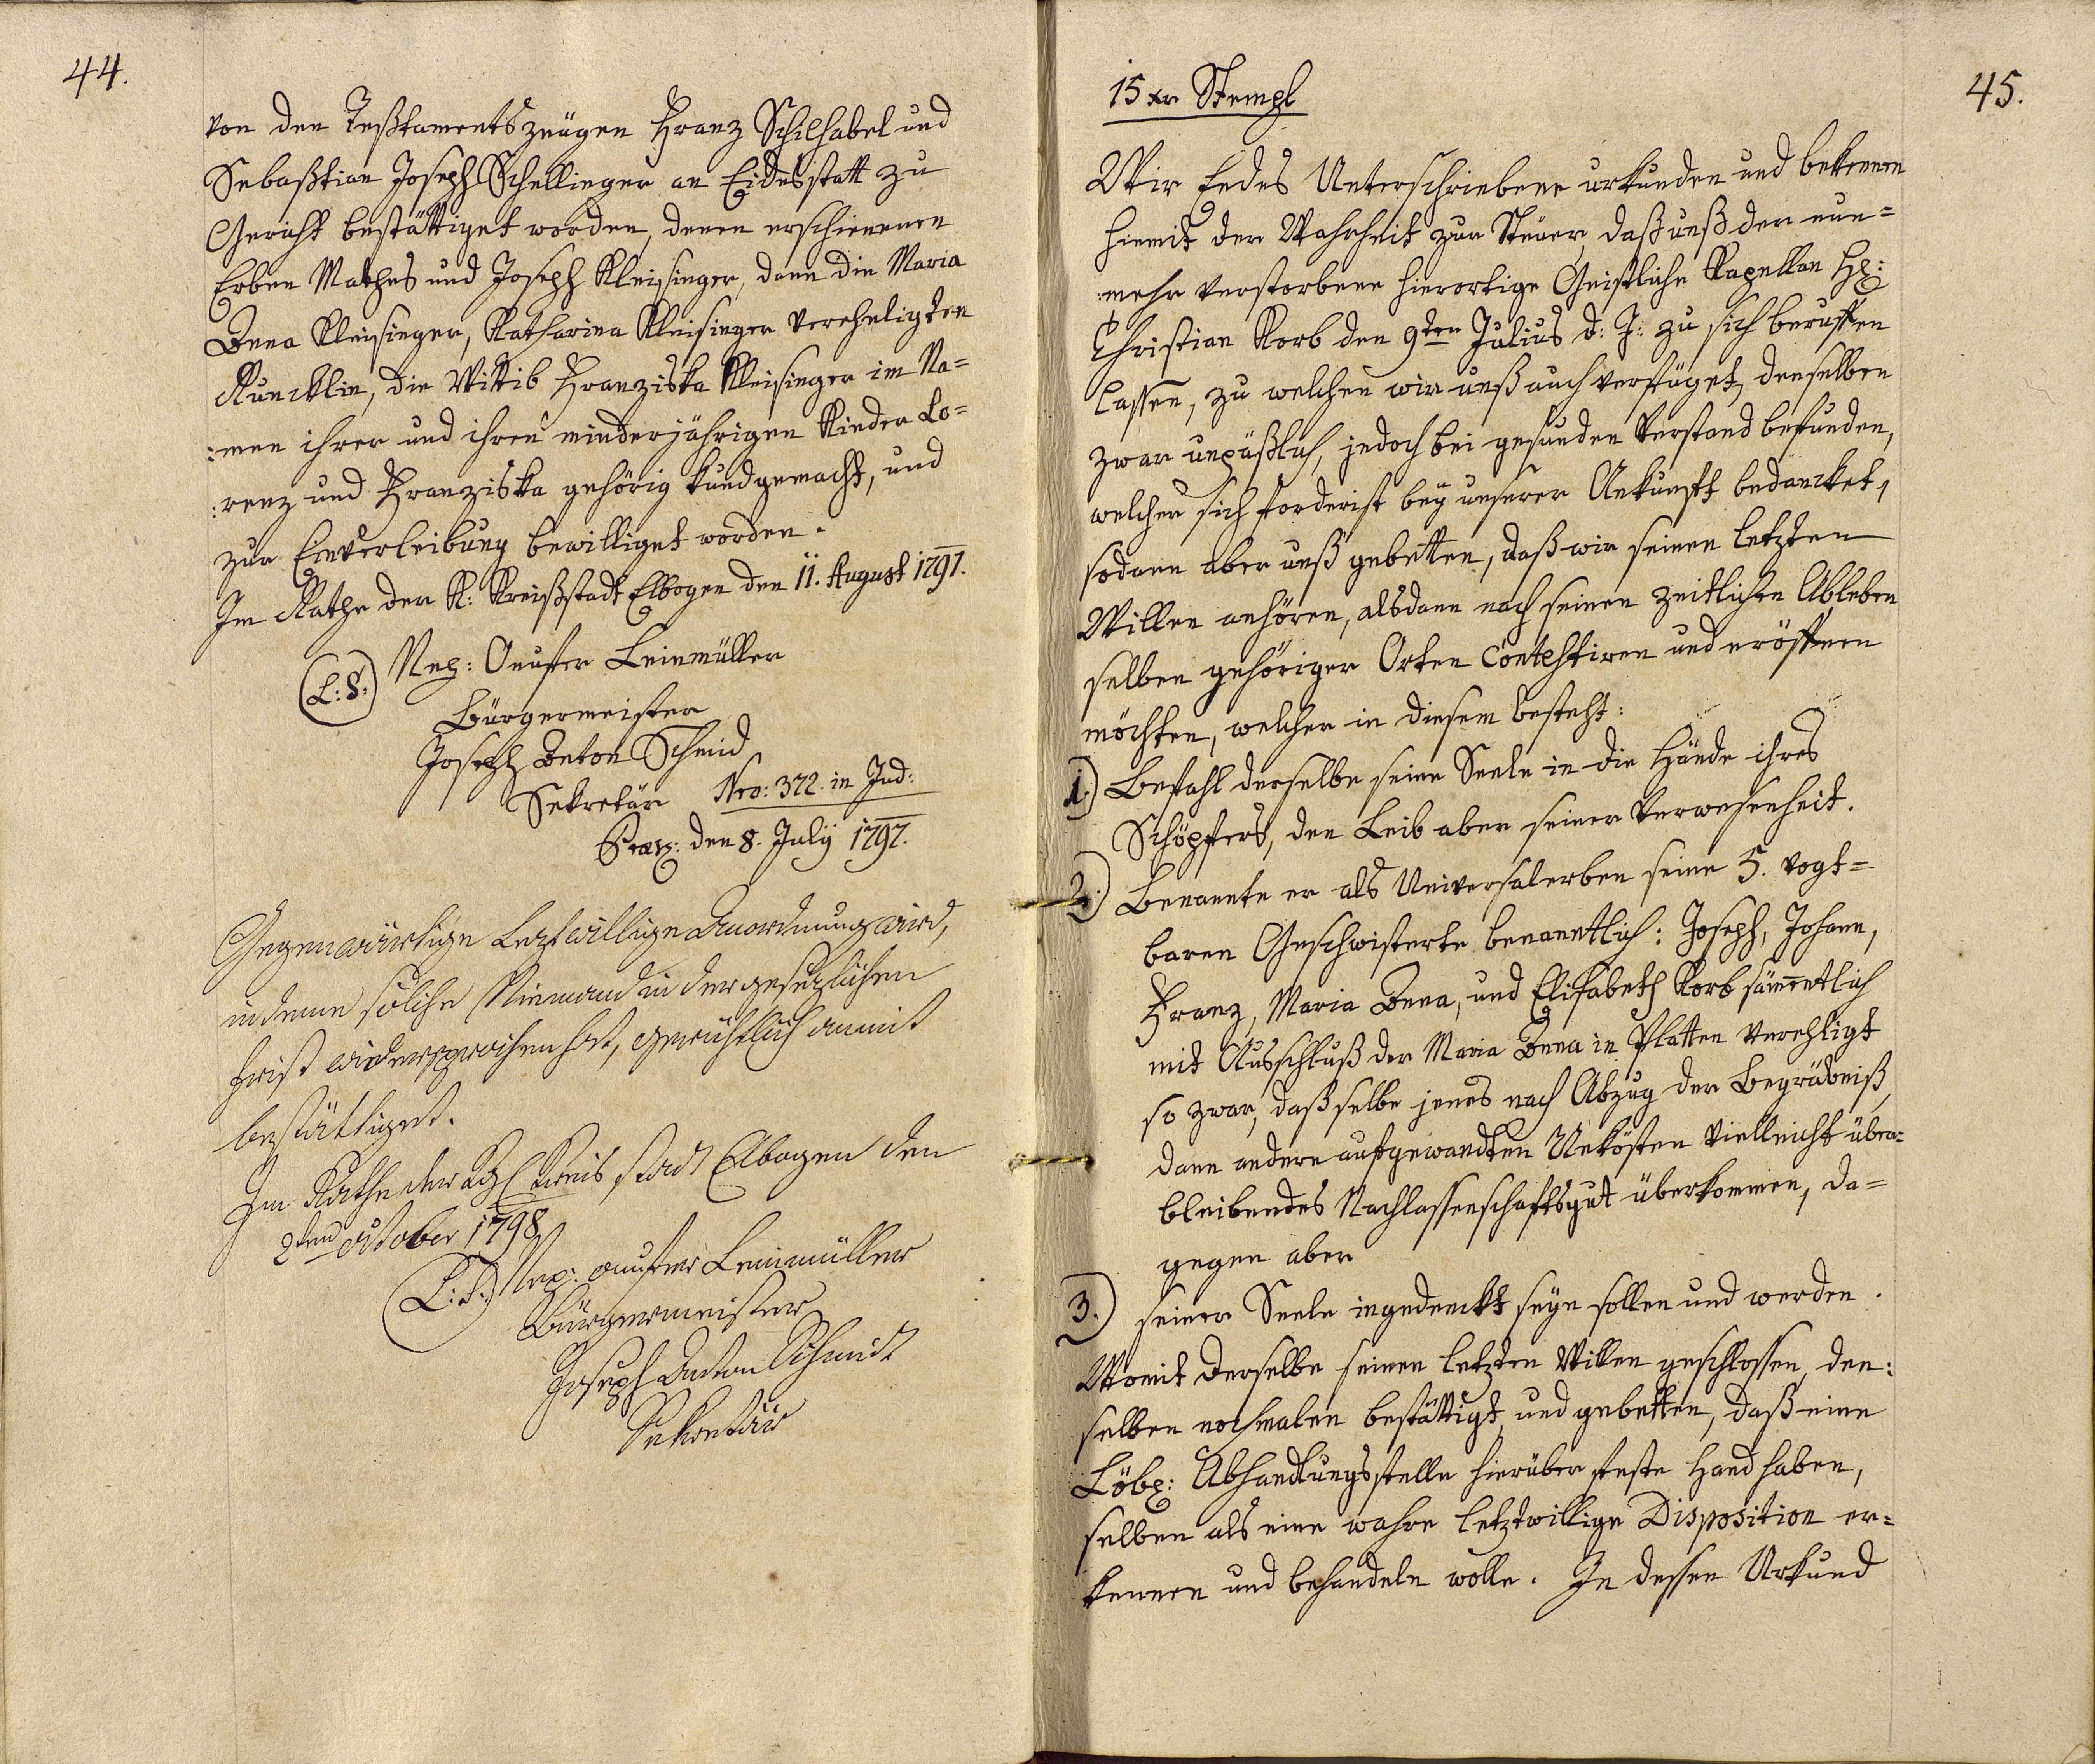 44.
von den Teßtamentszeügen Franz Schilhabel und
Sebaßtian Joseph Schellinger an Eidesstatt zu
Gericht bestättiget worden, denen erschienenen
Erben Mathes und Joseph Kleisinger, dann die Maria
Anna Kleisinger, Katharina Kleisinger vereheligten
die Wittib Franziska Kleisinger im Na=
:men ihrer und ihren minderjährigen Kinder Lo=
:renz und Franziska gehörig kundgemacht, und
zur Einverleibung bewilliget worden.
Im Rathe der K: Kreißstadt Elbogen den 11. August 1797.
(L:S:) Nep: Leinmüller
Bürgermeister
Joseph Anton Schmid
Sekretär Nro: 372. in Jud:
Praes: den 8. July 1797.
Gegenwärtige Leztwillige Anordnung wird,
indeme solche Niemand in der gesezlichen
Frist widersprochen hat, gerichtlich anmit
bestättiget.
Im Rathe der Kgl Kreis stadt Elbogen den
2ten october 1798
(L:S:) Nep: Leinmüller
Bürgermeister
Joseph Anton Schmidt
Sekretär
45.
15 xr Stempl
Wir Endes Unterschriebene urkunden und bekennen
hiemit der Wahrheit zur Steuer, daß unß der nun=
:mehr verstorbene hierortige Geistliche Kapellan H:
Christian Korb den 9ten Julius d: J: zu sich beruffen
lassen, zu welchen wir unß auch verfüget, denselben
zwar unpäßlich, jedoch bei gesunden Verstand befunden,
welcher sich forderist bey unserer Ankunfft bedancket,
sodann aber unß gebetten, daß wir seinen letzten
Willen anhören, alsdann nach seinen zeitlichen Ableben
selben gehöriger Orten contestiren und eröffnen
möchten, welcher in diesem besteht:
1.) Befahl derselbe seine Seele in die Hände ihres
Schöpfers, den Leib aber seiner Verwesenheit.
2.) Benannte er als Universalerben seine 5. vogt=
baren Geschwisterte benanntlich: Joseph, Johann,
Franz, Maria Anna, und Elisabeth Korb sämmtlich
mit Ausschluß der Maria Anna in Platten verehligt
so zwar, daß selbe jenes nach Abzug der Begräbniß,
dann andere aufgewandten Unkösten vielleicht über=
bleibendes Nachlassenschaftsgut überkommen, da=
gegen aber
3.) seiner Seele ingedenckt seyn sollen und werden.
Womit derselbe seinen letzten Willen geschlossen, den:
selben nochmalen bestättigt, und gebetten, daß eine
Löbl: Abhandlungsstelle hierüber feste Hand haben,
selben als eine wahre letztwillige Disposition er=
kennen und behandeln wolle. In dessen Urkund